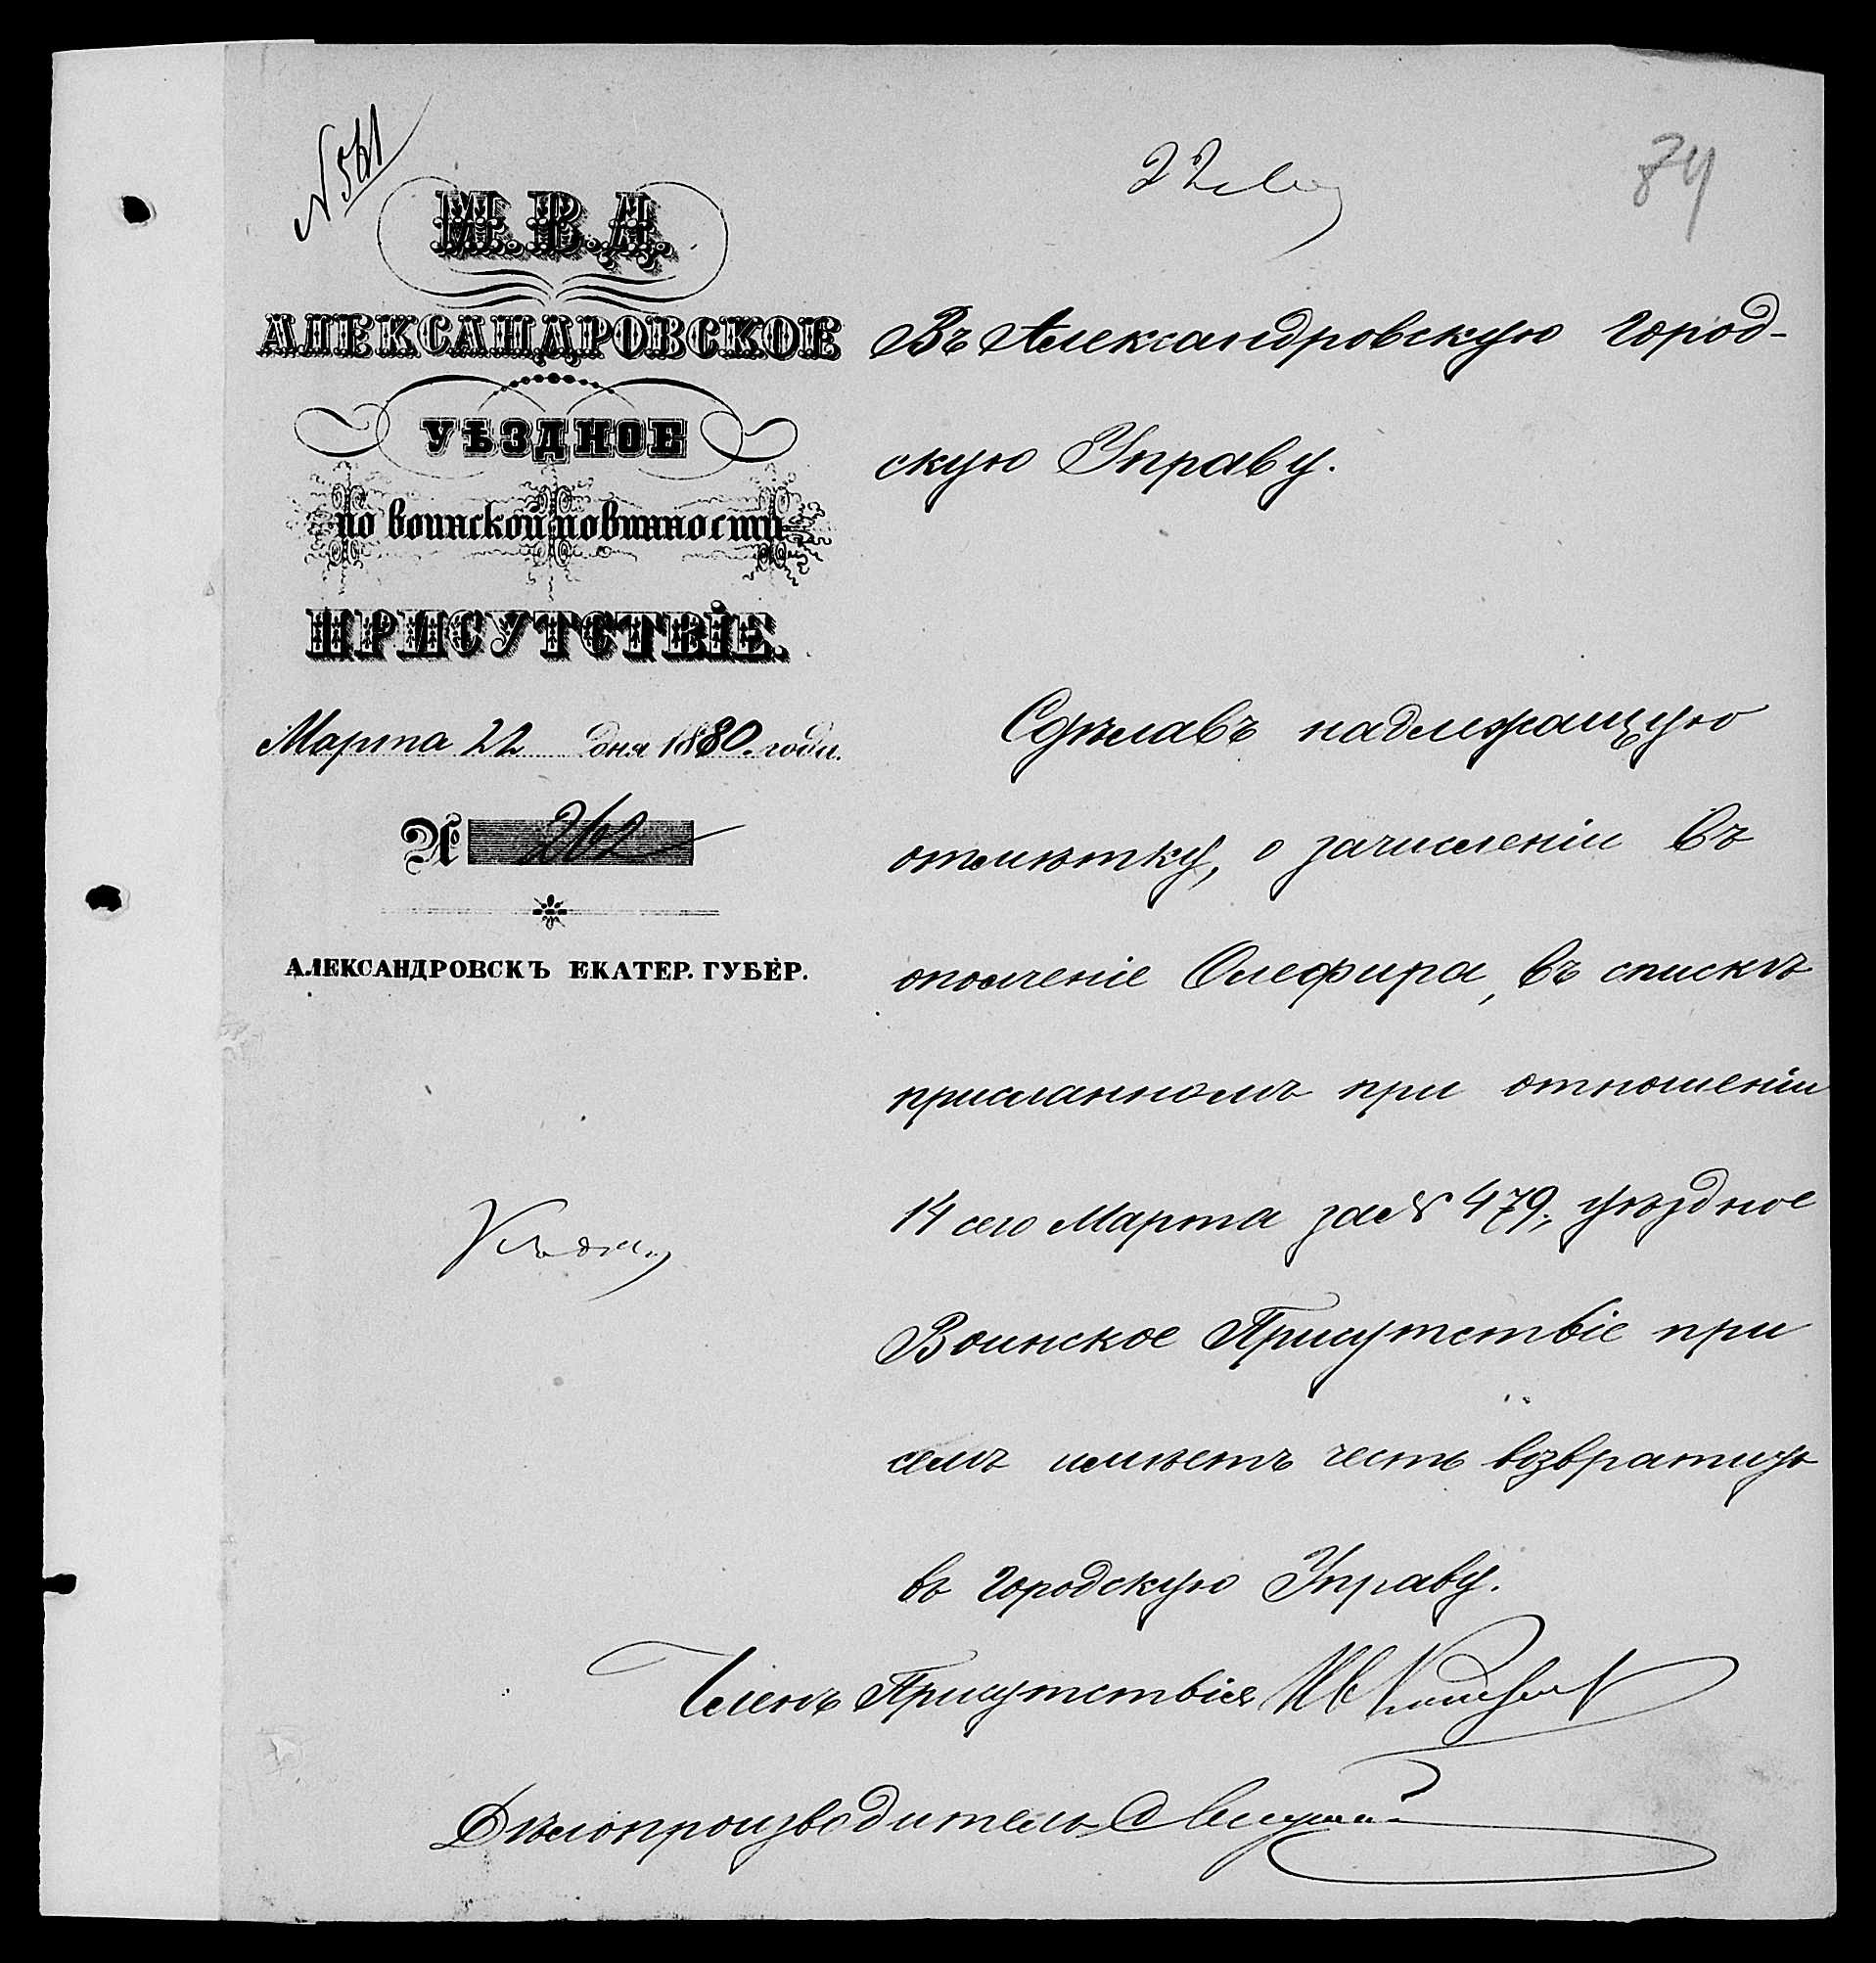 № 561
84
М. В. Д.
АЛЕКСАНДРОВСКОЕ
УѢЗДНОЕ
по воинской повинности
ПРИСУТСТВІЕ.
Марта 22 дня 1880 года.
№ 262
АЛЕКСАНДРОВСКЪ ЕКАТЕР. ГУБЕР.
22
Въ Александровскую Город-
скую Управу.
Сдѣлавъ надлежащую
отмѣтку, о зачисленіи въ
ополченіе Олефира, въ спискѣ
присланномъ при отношеніи
14 сего Марта за № 479, уѣздное
Воинское Присутствіе при
семъ имѣетъ честь возвратить
въ Городскую Управу.
Членъ Присутствія
Дѣлопроизводитель